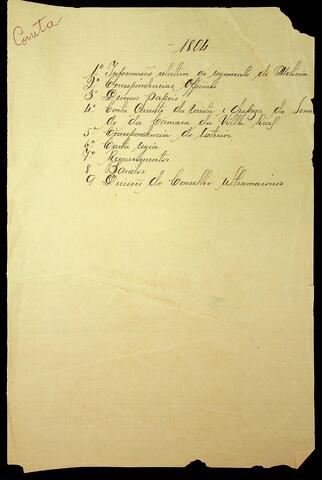 Correta
- 1804 -
1º Informação relativa ao regimento de Milicia
2º Correspondencias Officiaes
3º Diversos papeis
4º Conta Corrente da receita e despeza do Sena
do da Camara da Villa Rica
5º Correspondencia do interior
6º Carta regia
7º Requerimentos
8 Bandos
9 Decisões do Conselho Ultramarino